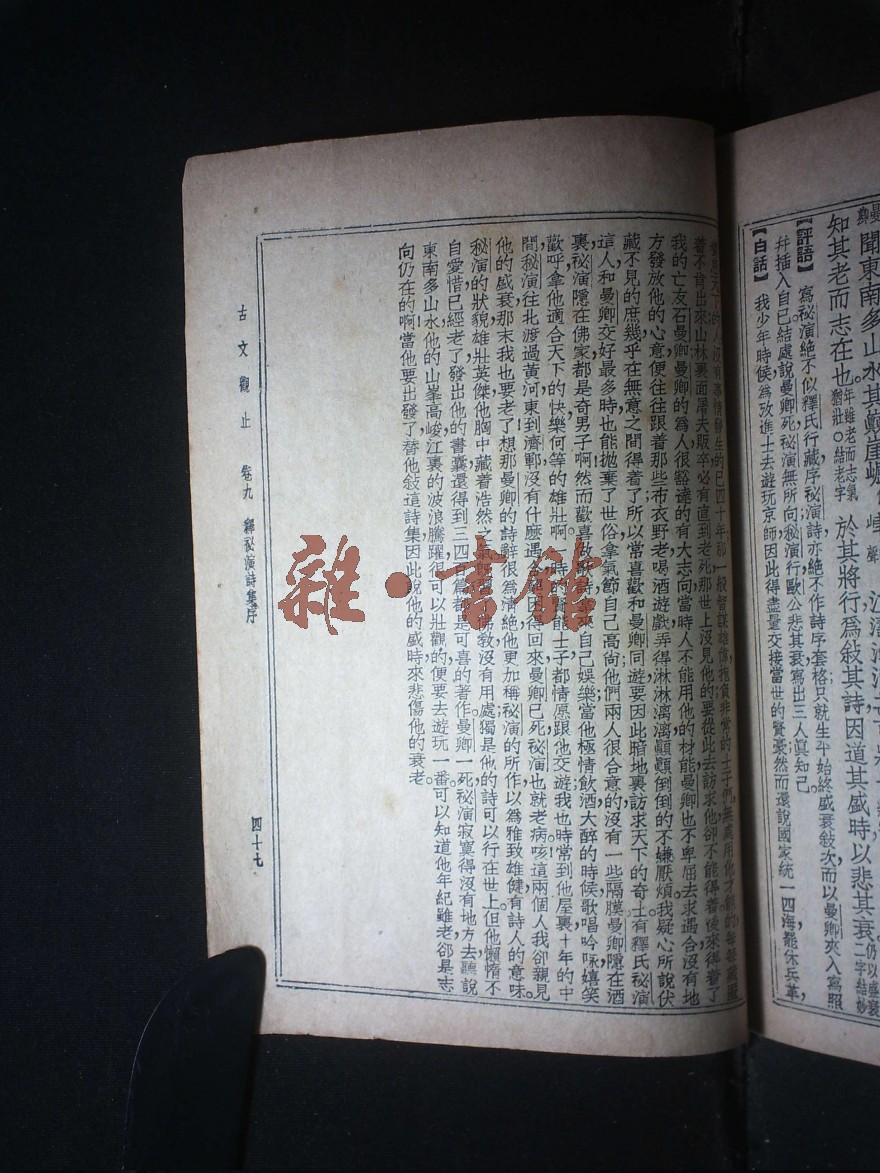 聞東南多山水其巔崖崛
知其老而志在也年雖老而志氣猶壯○結老字 於其將行爲敍其詩因道其盛時以悲其衰仍以盛衰二字結妙
【評語】 寫祕演絶不似釋氏行藏序祕演詩亦絶不作詩序套格只就生平始終盛衰敍次而以曼卿夾入寫照
幷插入自已結處說曼卿死祕演無所向祕演行歐公悲其衰寫出三人眞知己
【白話】 我少年時候爲攷進士去遊玩京師因此得盡量交接當世的賢豪然而還說國家統一四海罷休兵革
天下的人沒有事情發生的已四十年那一般智謀雄偉抱負非常的士子們無處用他才能的每每藏匿
着不肯出來山林裏面屠夫販卒必有直到老死那世上沒見他的要從此去訪求他卻不能得着後來得着了
我的亡友石曼卿曼卿的爲人很豁達的有大志向當時人不能用他的材能曼卿也不卑屈去求遇合沒有地
方發放他的心意便往往跟着那些布衣野老喝酒遊戲弄得淋淋漓漓顚顚倒倒的不嫌厭煩我疑心所說伏
藏不見的庶幾乎在無意之間得着了所以常喜歡和曼卿同遊要因此暗地裏訪求天下的奇士有釋氏祕演
這人和曼卿交好最多時也能拋棄了世俗拿氣節自己高尚他們兩人很合意的沒有一些隔膜曼卿隱在酒
裏祕演隱在佛家都是奇男子啊然而歡喜做歌詩拿來自己娛樂當他極情飲酒大醉的時候歌唱吟咏嬉笑
歡呼拿他適合天下的快樂何等的雄壯啊一時的賢能士子都情愿跟他交遊我也時常到他屋裏十年的中
間祕演往北渡過黃河東到濟鄆沒有什麽遇合困得回來曼卿已死祕演也就老病咳這兩個人我卻親見
他的盛衰那末我也要老了想那曼卿的詩辭很爲淸絶他更加稱祕演的所作以爲雅致雄健有詩人的意味
祕演的狀貌雄壯英傑他胸中藏着浩然之氣旣習佛敎沒有用處獨是他的詩可以行在世上但他懶惰不
自愛惜已經老了發出他的書囊還得到三四百篇都是可喜的著作曼卿一死祕演寂寞得沒有地方去聽說
東南多山水他的山峯高峻江裏的波浪騰躍很可以壯觀的便要去遊玩一番可以知道他年紀雖老卻是志
向仍在的啊當他要出發了替他敍這詩集因此說他的盛時來悲傷他的衰老
古文觀止 卷九 釋祕演詩集序
四十七
雜·書館